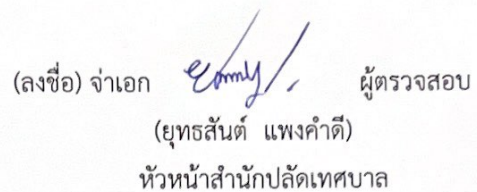 (ลงชื่อ) จ่าเอก ผู้ตรวจสอบ
(ยุทธสันต์ แพงคำดี)
หัวหน้าสำนักปลัดเทศบาล